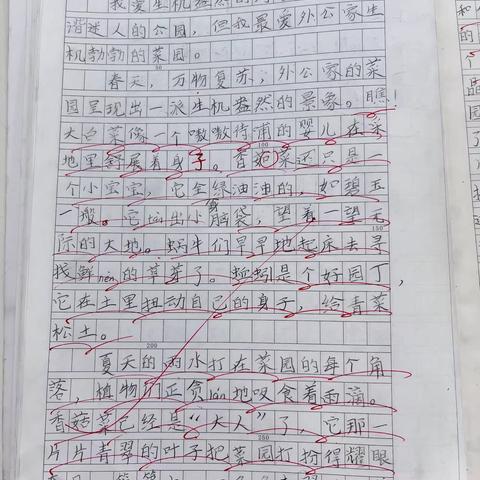 我爱生机盎然的
谐迷人的公园，但我最爱外公家生
机勃勃的菜园。
50
春天，万物复苏，外公家的菜
园里现出一派生机盎然的景象。瞧！
大白菜像一个嗷嗷待哺的婴儿在菜
100
地里舒展着身子。香菇菜还只是一
个小宝宝，它全绿油油的，如碧玉
一
它 出小脑袋，望着一望无
150
际的大地。蜗牛们早早地起床去寻
找鲜nèn的草芽了。蚯蚓是个好园丁，
它在土里扭动自己的身子，给青菜
松土。
200
夏天的雨水打在菜园的每个角
落，植物们正贪lán地吸食着雨滴。
香菇菜已经是“大人”了，它那一
250
片片青翠的叶子把菜园打扮得耀眼